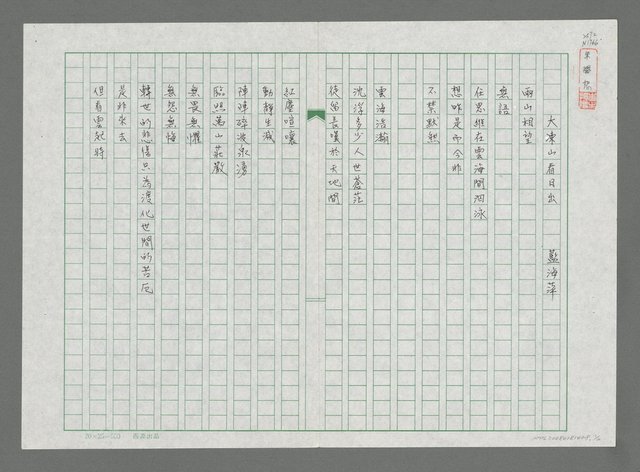 大東山看日出 藍海萍
兩山相望
無語
任思維在雲海間泅泳
想昨是而今非
不禁默然
雲海浩瀚
沈浮多少人世蒼茫
徒留長嘆於天地間
紅塵喧嚷
動靜生滅
陣陣碎波泉湧
臨照萬山莊嚴
無畏無懼
無怨無悔
轉世的悲傷只為渡化世間的苦厄
是非來去
但看雲起時
20×25=500